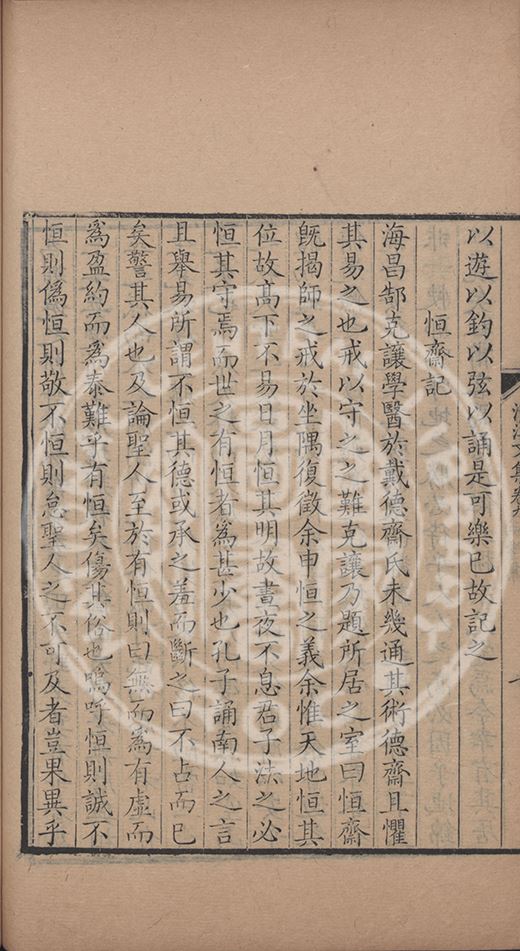 以遊以釣以弦以誦是可樂已故記之
恒齋記
海昌郜克讓學醫於戴德齋氏未幾通其術德齋且懼
其易之也戒以守之之難克讓乃題所居之室曰恒齋
既揭師之戒於坐隅復徵余申恒之義余惟天地恒其
位故高下不易日月恒其明故晝夜不息君子法之必
恒其守焉而世之有恒者為甚少也孔子誦南人之言
且舉易所謂不恒其德或承之羞而斷之曰不占而已
矣警其人也及論聖人至於有恒則曰無而為有虛而
為盈約而為泰難乎有恒矣傷其俗也嗚呼恒則誠不
恒則偽恒則敬不恒則怠聖人之不可及者豈果異乎